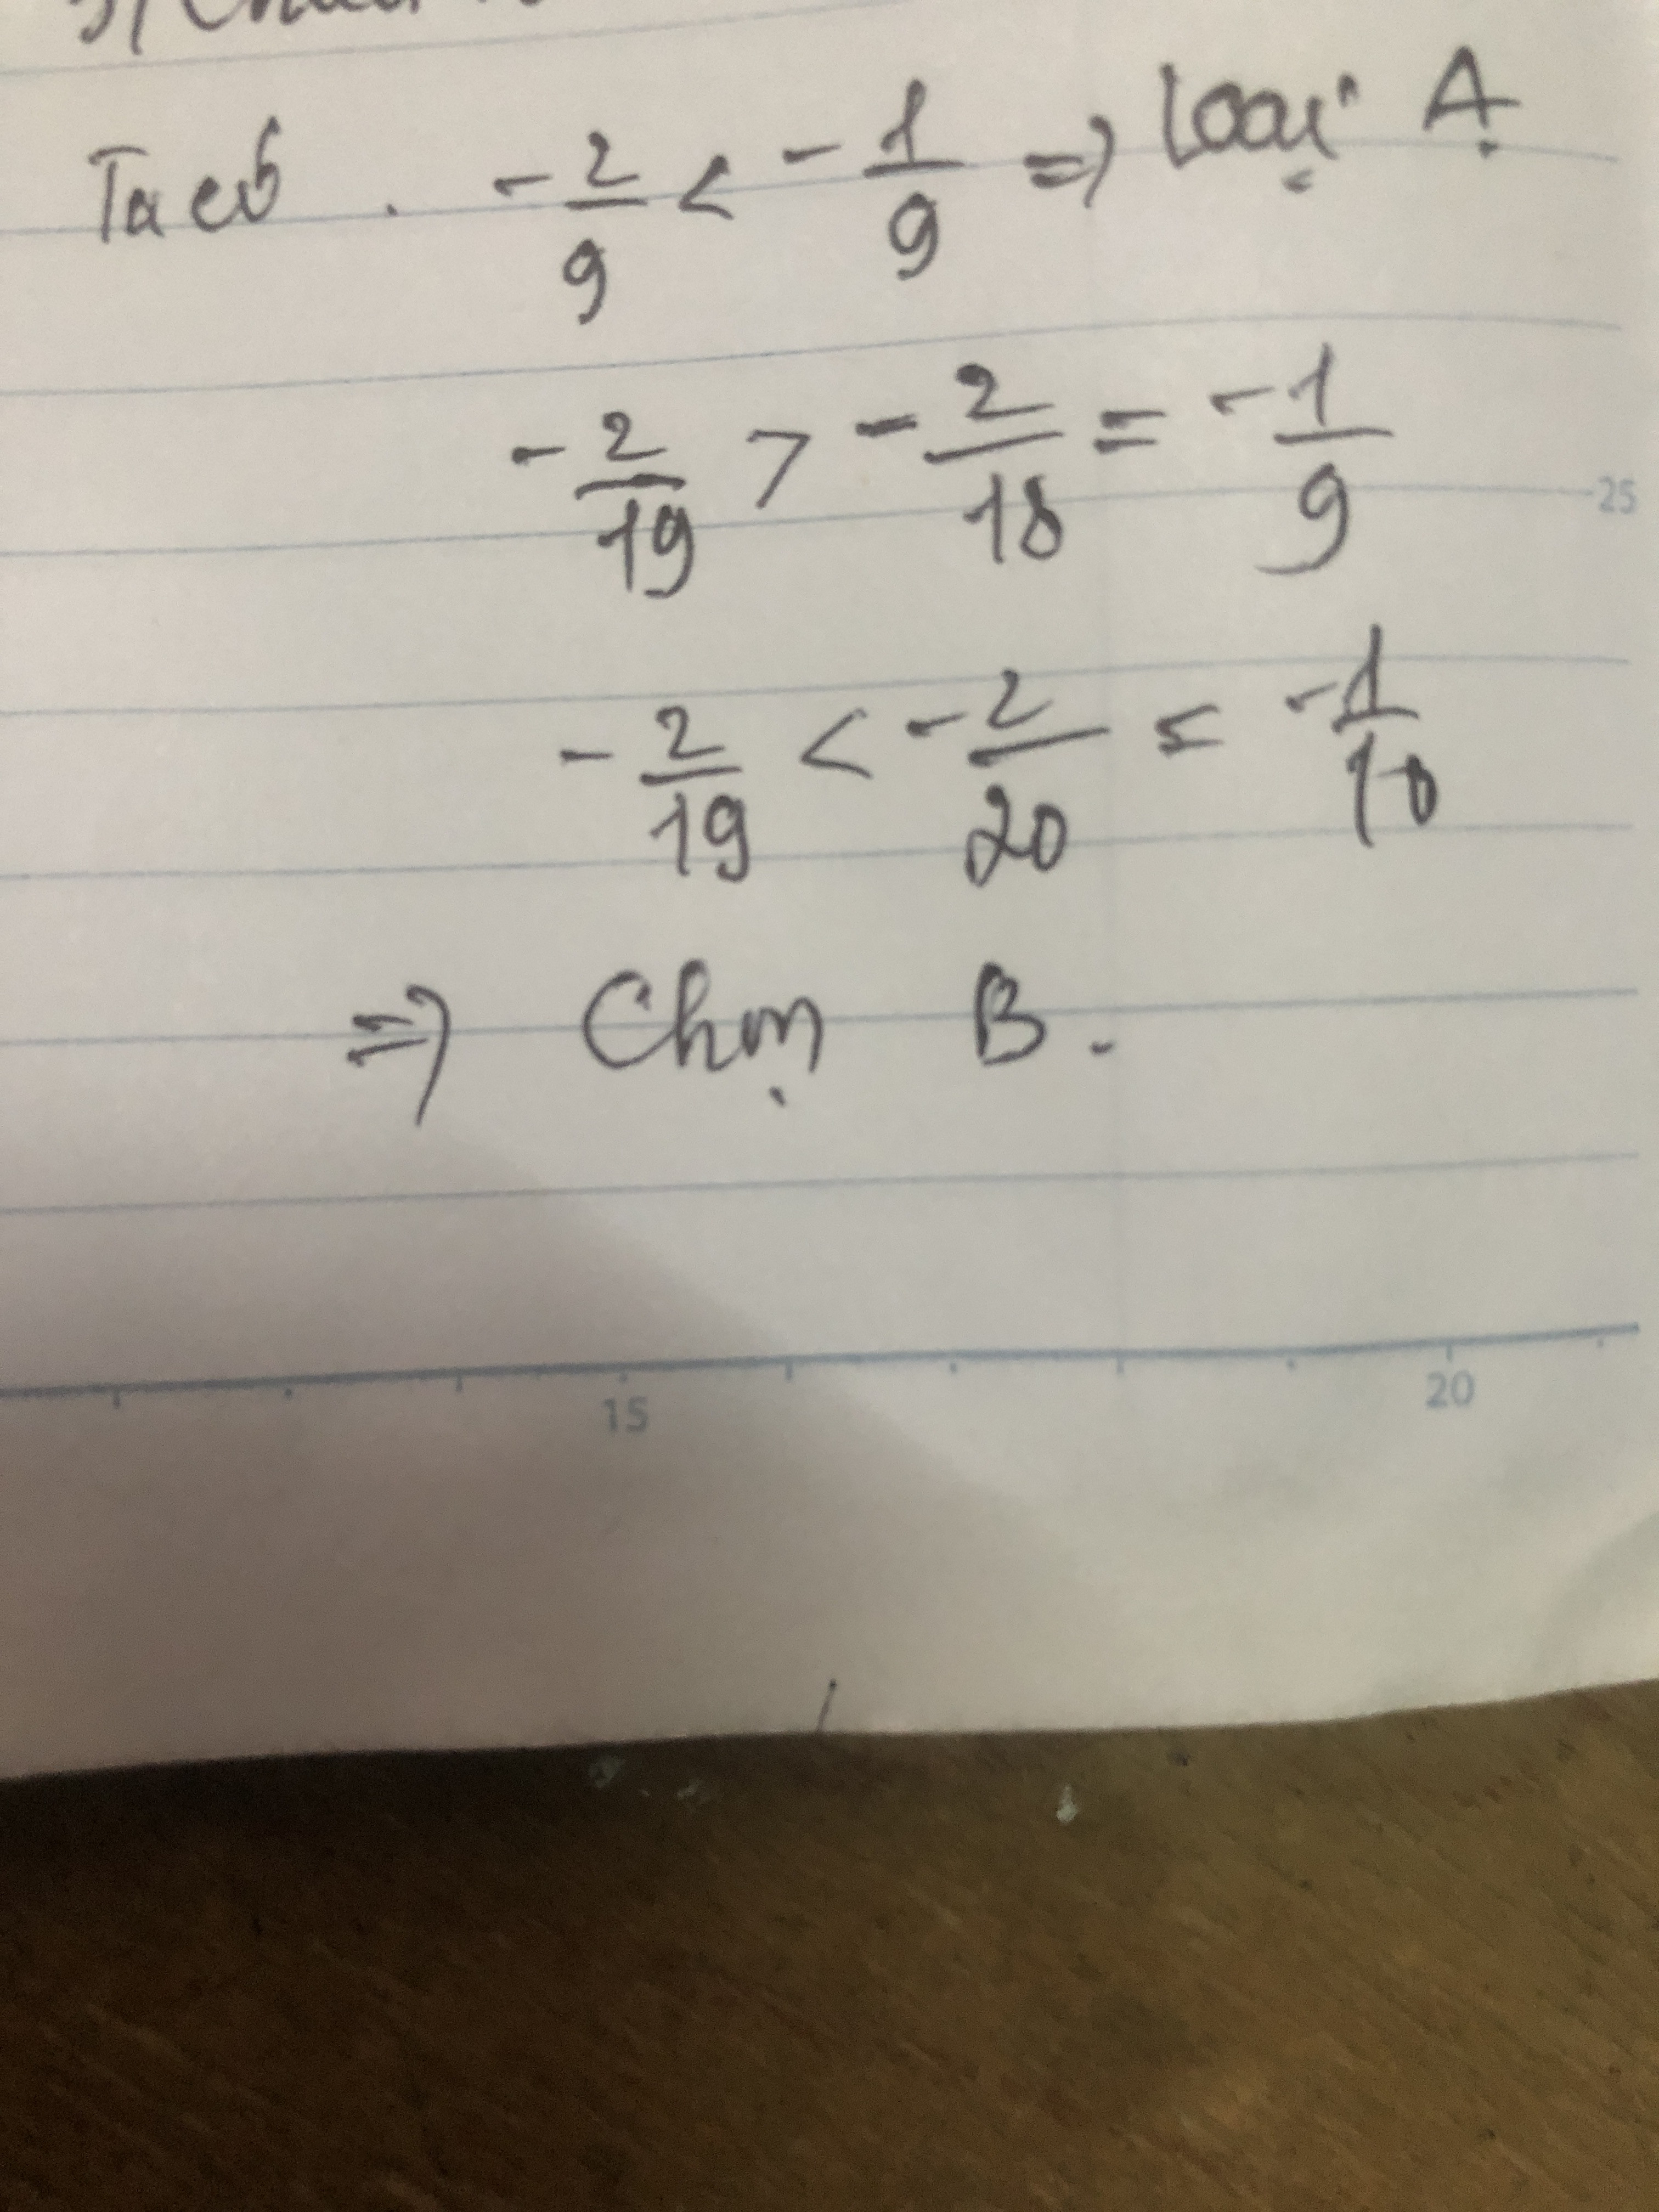 Ta có . -2/9 < -1/9 => Loại A.
-2/19 > -2/18 = -1/9
25
-2/19 < -2/20 = -1/10
=> Chọn B.
15 20